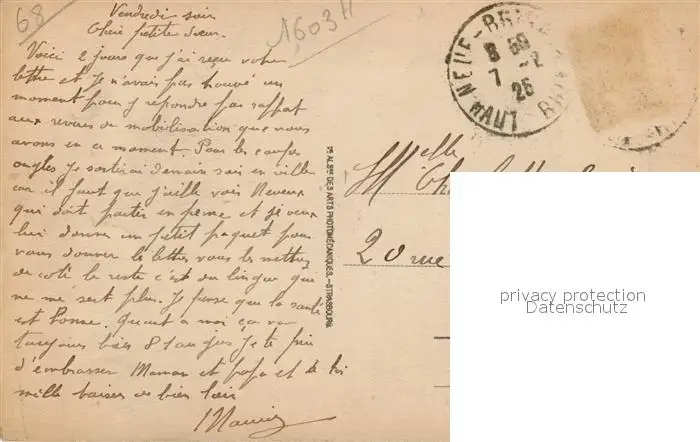 68
1603 H
Vendredi soir
Chère petite sœur.
Voici 2 jours que j'ai reçu votre
lettre et je n'avais pas trouvé un
moment pour y répondre par rapport
aux revues de mobilisation que nous
avons en ce moment. Pour les
ongles je sortirai demain soir en ville
car il faut que j'aille voir
qui doit partir en perme et je veux
lui donner un petit paquet pour
vous donner les lettres vous les mettrez
de coté le reste c'est du linge qui
ne me sert plus. Je pense que la santé
est bonne. Quant à moi ça va
toujours bien je te prie
d'embrasser Maman et papa et
mille baisers de bien loin
Maurice
Pé ALSne DES ARTS PHOTOMÉCANIQUES. - STRASBOURG
NEUF-BRI
8 50
7 -2
25
HAUT
Melle
20 rue
privacy protection
Datenschutz